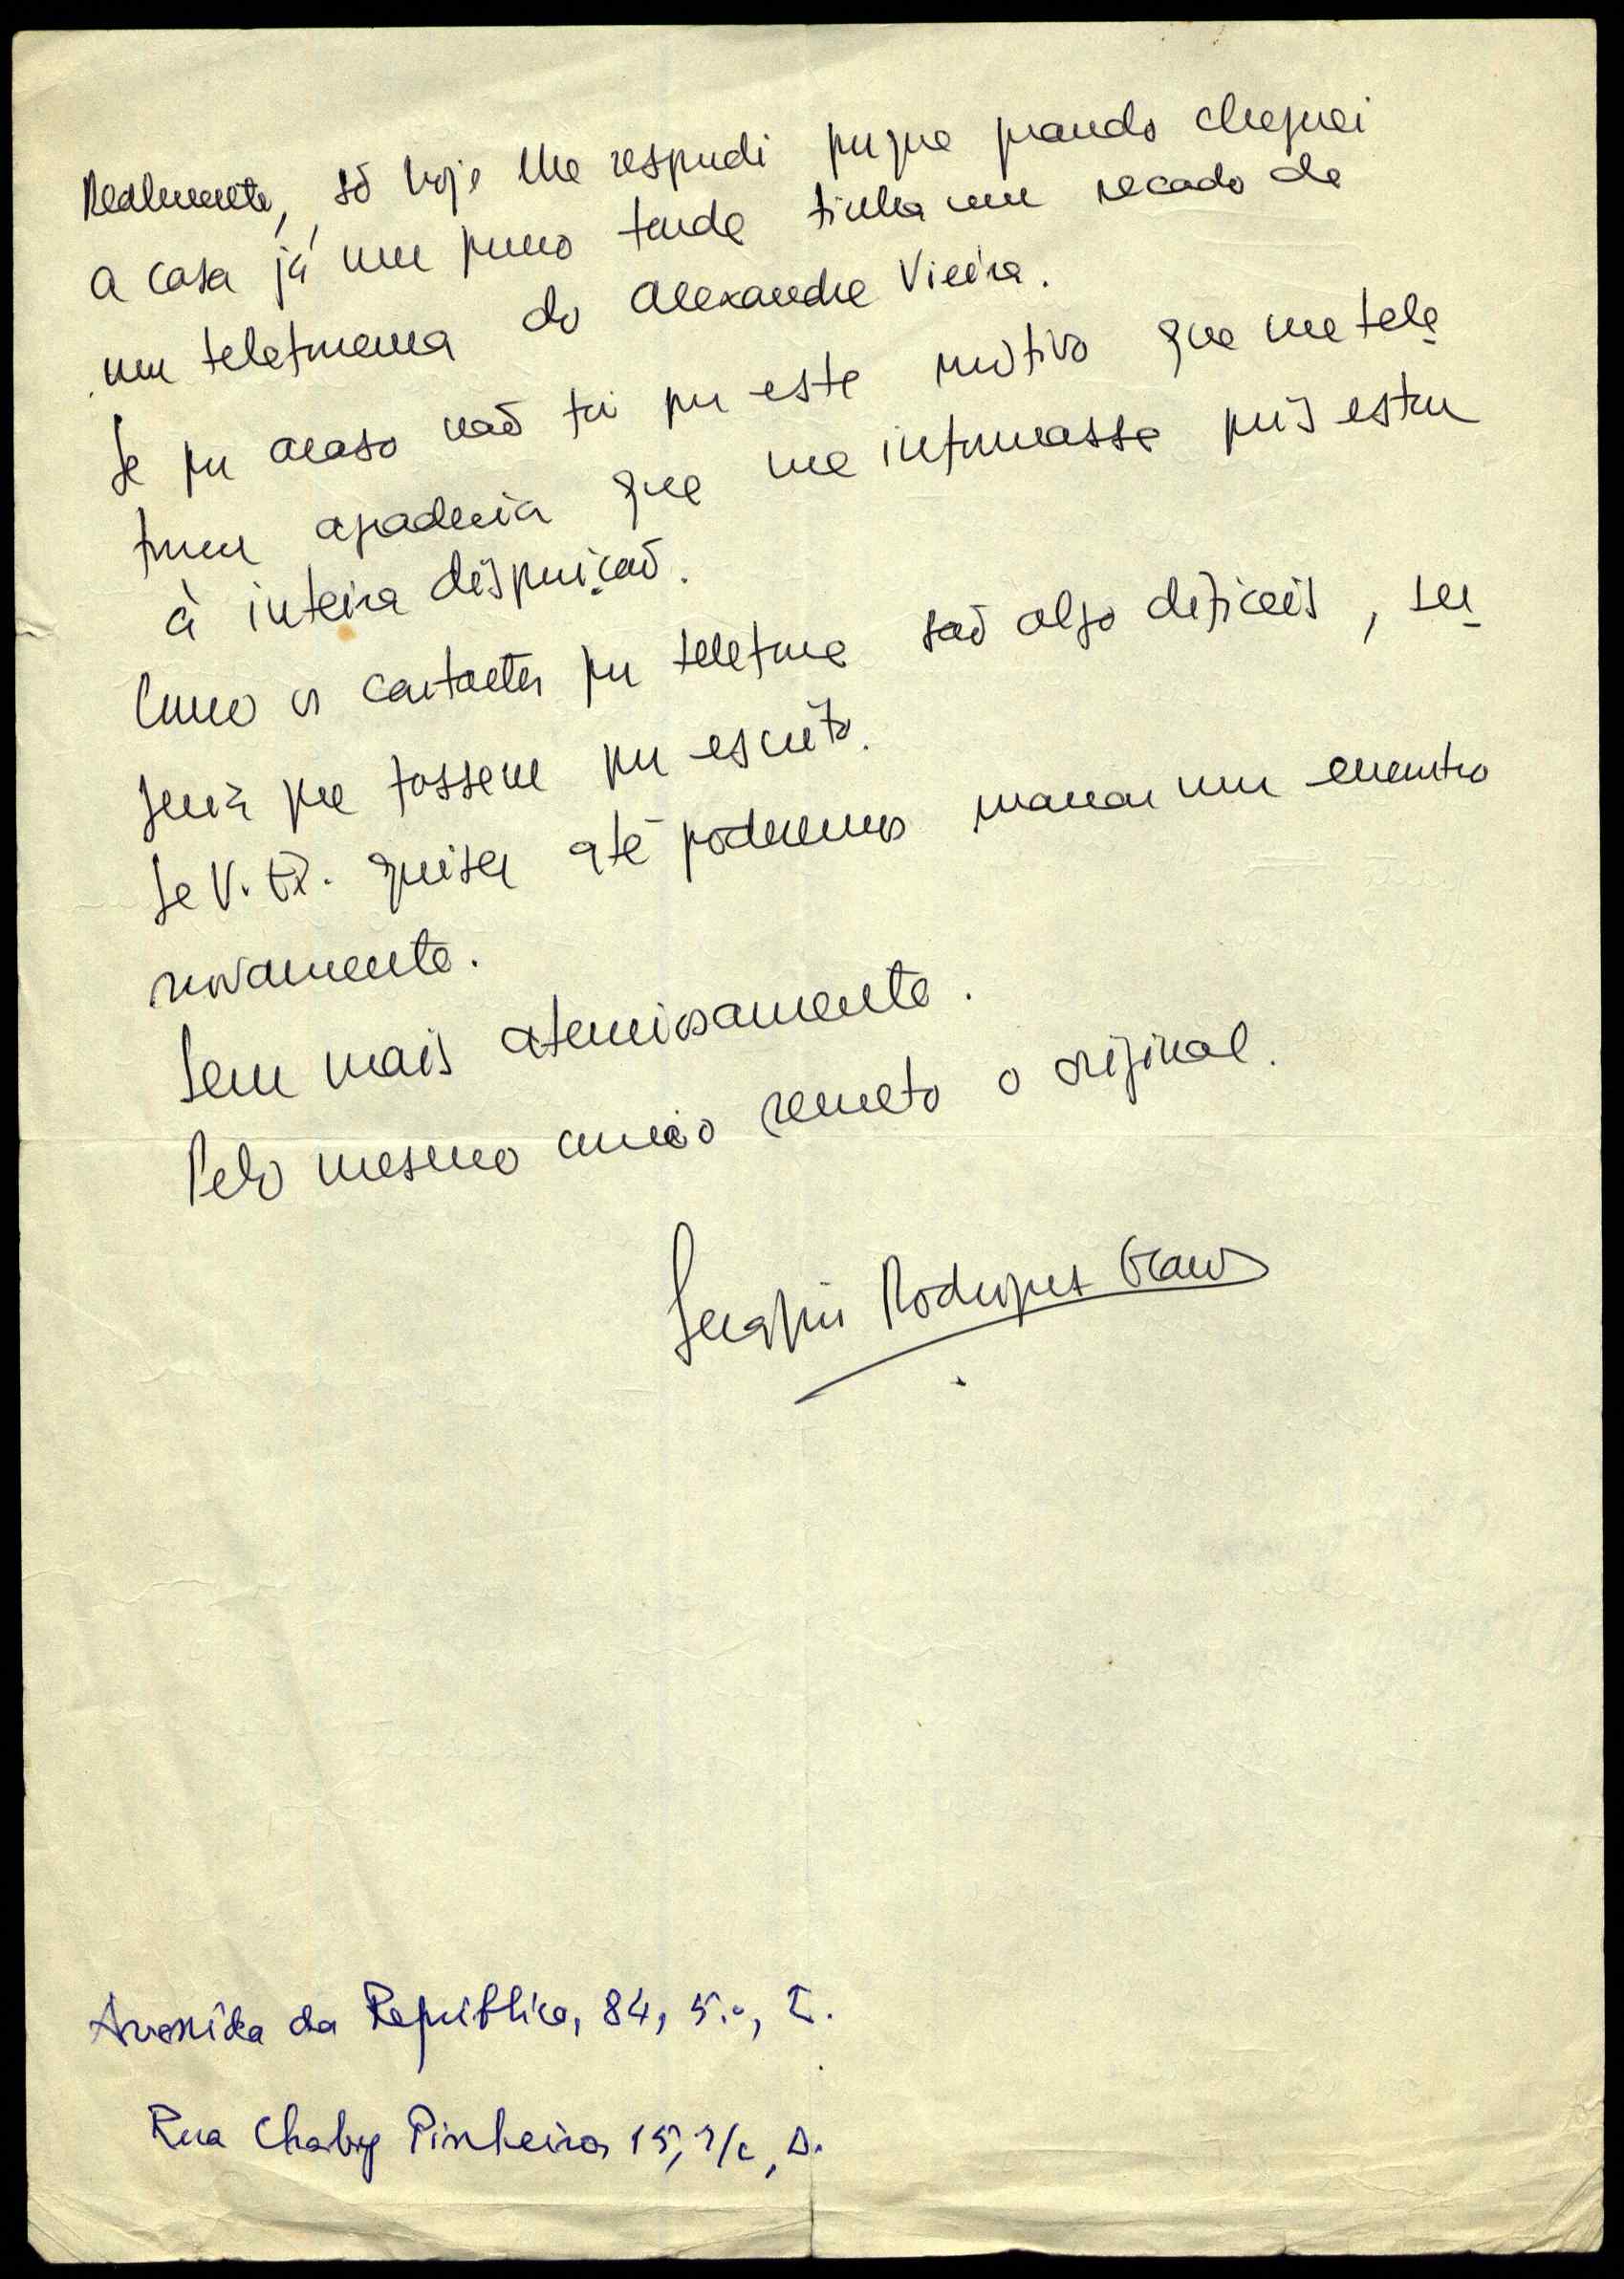 Realmente, só hoje lhe respondi porque quando cheguei
a casa já um pouco tarde tinha um recado de
um telefonema do Alexandre Vieira.
Se por acaso não foi por este motivo que me tele
fonou agradecia que me informasse pois estou
à inteira disposição.
Como os contactos por telefone são algo dificeis, su
geria que fossem por escrito.
Se V. Ex. quiser até poderemos marcar um encontro
novamente.
Sem mais atenciosamente.
Pelo mesmo correio remeto o original.
Serafim Rodrigues
Avenida da República, 84, 5.º,
Rua Chaby Pinheiro, 15, r/c, D.